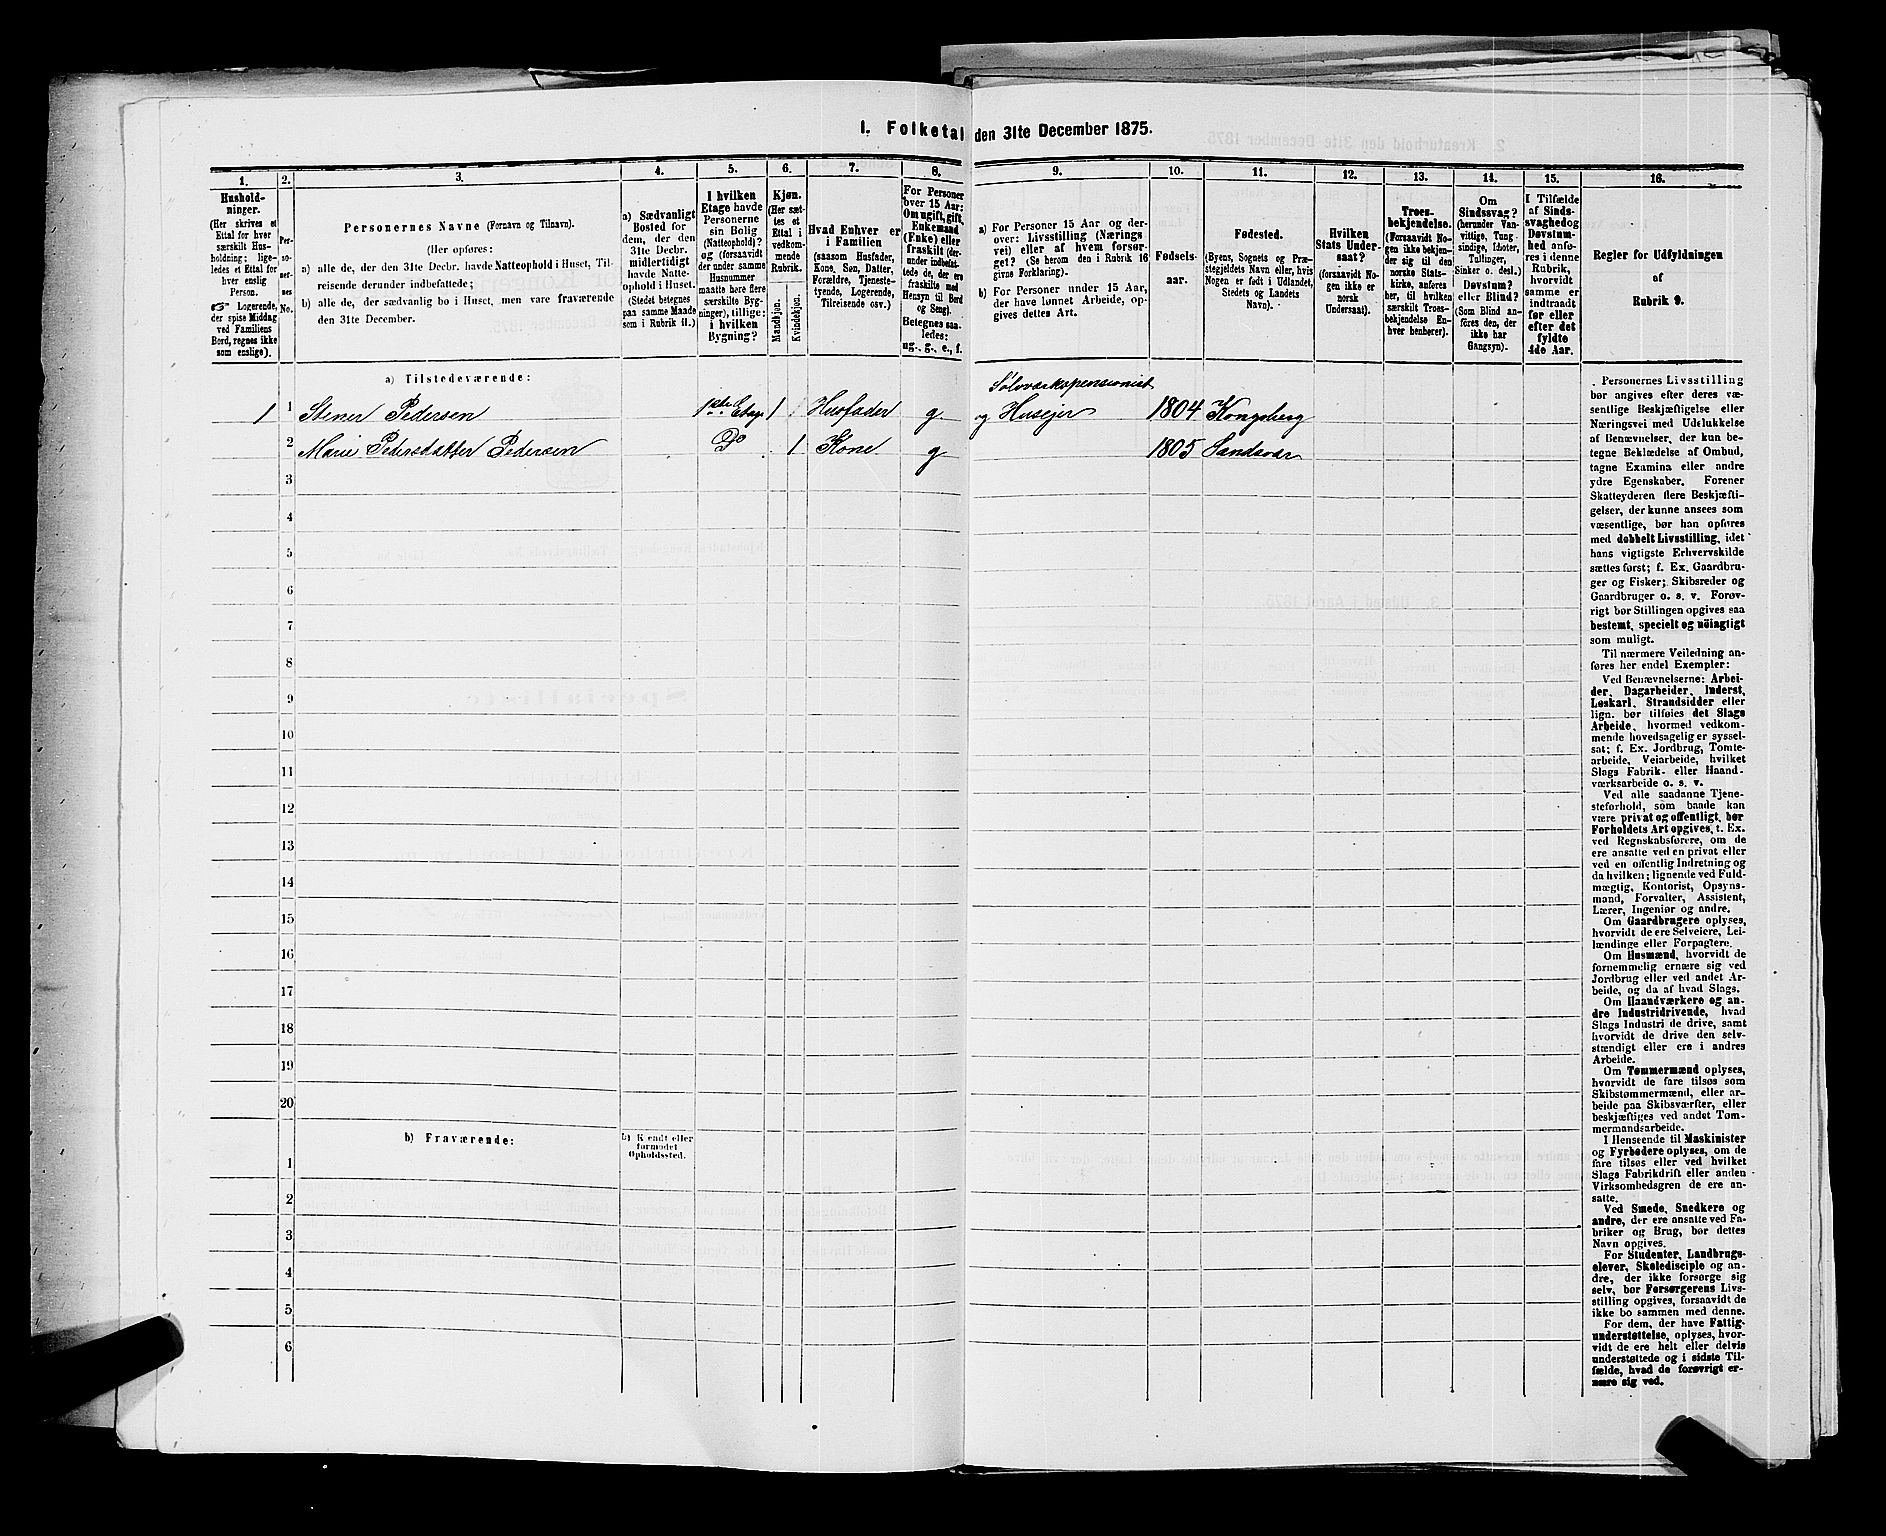 1. Folketal den 31te December 1875.
1.
Hushold-
ninger.
(Her skrives et
Ettal for hver
særskilt Hus-
holdning; lige-
ledes et Ettal for
hver enslig
Person.
☞ Logerende,
der spise Middag
ved Familiens
Bord, regnes ikke
som enslige).
2.
Per-
so-
ner-
nes
No.
3.
Personernes Navne (Fornavn og Tilnavn).
(Her opføres:
a) alle de, der den 31te Decbr. havde Natteophold i Huset, Til-
reisende derunder indbefattede;
b) alle de, der sædvanlig bo i Huset, men vare fraværende
den 31te December.
4.
a) Sædvanligt
Bosted for
dem, der den
31te Decbr.
midlertidigt
havde Natte-
ophold i Huset.
(Stedet betegnes
paa samme Maade
som i Rubrik 11.)
5.
I hvilken
Etage havde
Personerne
sin Bolig
(Natteophold)?
og (forsaavidt
der under samme
Husnummer
maatte høre flere
særskilte Byg-
ninger), tillige:
i hvilken
Bygning?
6.
Kjøn.
(Her sæt-
tes et
Ettal i
vedkom-
mende
Rubrik.
Mandkjøn.
Kvindekjøn.
7.
Hvad Enhver er
i Familien
(saasom Husfader,
Kone, Søn, Datter,
Forældre, Tjeneste-
tyende, Logerende,
Tilreisende osv.)
8.
For Personer
over 15 Aar:
Om ugift, gift,
Enkemand
(Enke) eller
fraskilt (der-
under indbefat-
tede de, der ere
fraskilte med
Hensyn til Bord
og Seng).
Betegnes saa-
ledes:
ug., g., e., f.
9.
a) For Personer 15 Aar og der-
over: Livsstilling (Nærings-
vei) eller af hvem forsør-
get? (Se herom den i Rubrik 16
givne Forklaring).
b) For Personer under 15 Aar,
der have lønnet Arbeide, op-
gives dettes Art.
10.
Fødsels-
aar.
11.
Fødested.
(Byens, Sognets og Præ-
stegjeldets Navn eller, hvis
Nogen er født i Udlandet,
Stedets og Landets
Navn).
12.
Hvilken
Stats Under-
saat?
(forsaavidt No-
gen ikke er
norsk
Undersaat).
13.
Troes-
bekjendelse.
(Forsaavidt No-
gen ikke bekjen-
der sig til den
norske Stats-
kirke, anføres
her, til hvilken
særskilt Troes-
bekjendelse En-
hver henhører).
14.
Om
Sindssvag?
(herunder Van-
vittige, Tung-
sindige, Idioter,
Tullinger,
Sinker o. desl.)
Døvstum?
eller Blind?
(Som Blind an-
føres den, der
ikke har
Gangsyn).
15.
I Tilfælde
af Sinds-
svaghed og
Døvstum-
hed anfø-
res i denne
Rubrik,
hvorvidt
samme er
indtraadt
før eller
efter det
fyldte
4de Aar.
16.
Regler for Udfyldningen
af
Rubrik 9.
a) Tilstedeværende:
Sølvværkspensionist
1 1 Stener Pedersen 1ste Etage 1 Husfader g. og Huseier 1804 Kongsberg
2 Marie Pedersdatter Pedersen Do 1 Kone g 1805 Sandsvær
3
4
5
6
7
8
9
10
11
12
13
14
15
16
17
18
19
20
b) Fraværende:
b) Kjendt eller
formodet
Opholdssted.
1
2
3
4
5
6
Personernes Livsstilling
bør angives efter deres væ-
sentlige Beskjæftigelse eller
Næringsvei med Udelukkelse
af Benævnelser, der kun be-
tegne Beklædelse af Ombud,
tagne Examina eller andre
ydre Egenskaber. Forener
Skatteyderen flere Beskjæfti-
gelser, der kunne ansees som
væsentlige, bør han opføres
med dobbelt Livsstilling, idet
hans vigtigste Erhvervskilde
sættes først; f. Ex. Gaardbru-
ger og Fisker; Skibsreder og
Gaardbruger o. s. v. Forøv-
rigt bør Stillingen opgives saa
bestemt, specielt og nöiagtigt
som muligt.
Til nærmere Veiledning an-
føres her endel Exempler:
Ved Benævnelserne: Arbei-
der, Dagarbeider, Inderst,
Løskarl, Strandsidder eller
lign. bør tilføies det Slags
Arbeide, hvormed vedkom-
mende hovedsagelig er syssel-
sat; f. Ex. Jordbrug, Tomte-
arbeide, Veiarbeide, hvilket
Slags Fabrik- eller Haand-
værksarbeide o. s. v.
Ved alle saadanne Tjene-
steforhold, som baade kan
være privat og offentligt, bør
Forholdets Art opgives, t. Ex.
ved Regnskabsførere, om de
ere ansatte ved en privat eller
ved en offentlig Indretning og
da hvilken; lignende ved Fuld-
mægtig, Kontorist, Opsyns-
mand, Forvalter, Assistent,
Lærer, Ingeniør og andre.
Om Gaardbrugere oplyses,
hvorvidt de ere Selveiere, Lei-
lændinge eller Forpagtere.
Om Husmænd, hvorvidt de
fornemmelig ernære sig ved
Jordbrug eller ved andet Ar-
beide, og da af hvad Slags.
Om Haandværkere og an-
dre Industridrivende, hvad
Slags Industri de drive, samt
hvorvidt de drive den selv-
stændigt eller ere i andres
Arbeide.
Om Tømmermænd oplyses,
hvorvidt de fare tilsøs som
Skibstømmermænd, eller ar-
beide paa Skibsværfter, eller
beskjæftiges ved andet Tøm-
mermandsarbeide.
I Henseende til Maskinister
og Fyrbødere oplyses, om de
fare tilsøs eller ved hvilket
Slags Fabrikdrift eller anden
Virksomhedsgren de ere an-
satte.
Ved Smede, Snedkere og
andre, der ere ansatte ved Fa-
briker og Brug, bør dettes
Navn opgives.
For Studenter, Landbrugs-
elever, Skoledisciple og an-
dre, der ikke forsørge sig
selv, bør Forsørgerens Livs-
stilling opgives, forsaavidt de
ikke bo sammen med denne.
For dem, der have Fattig-
understøttelse, oplyses, hvor-
vidt de ere helt eller delvis
understøttede og i sidste Til-
fælde, hvad de forøvrigt er-
nære sig ved.